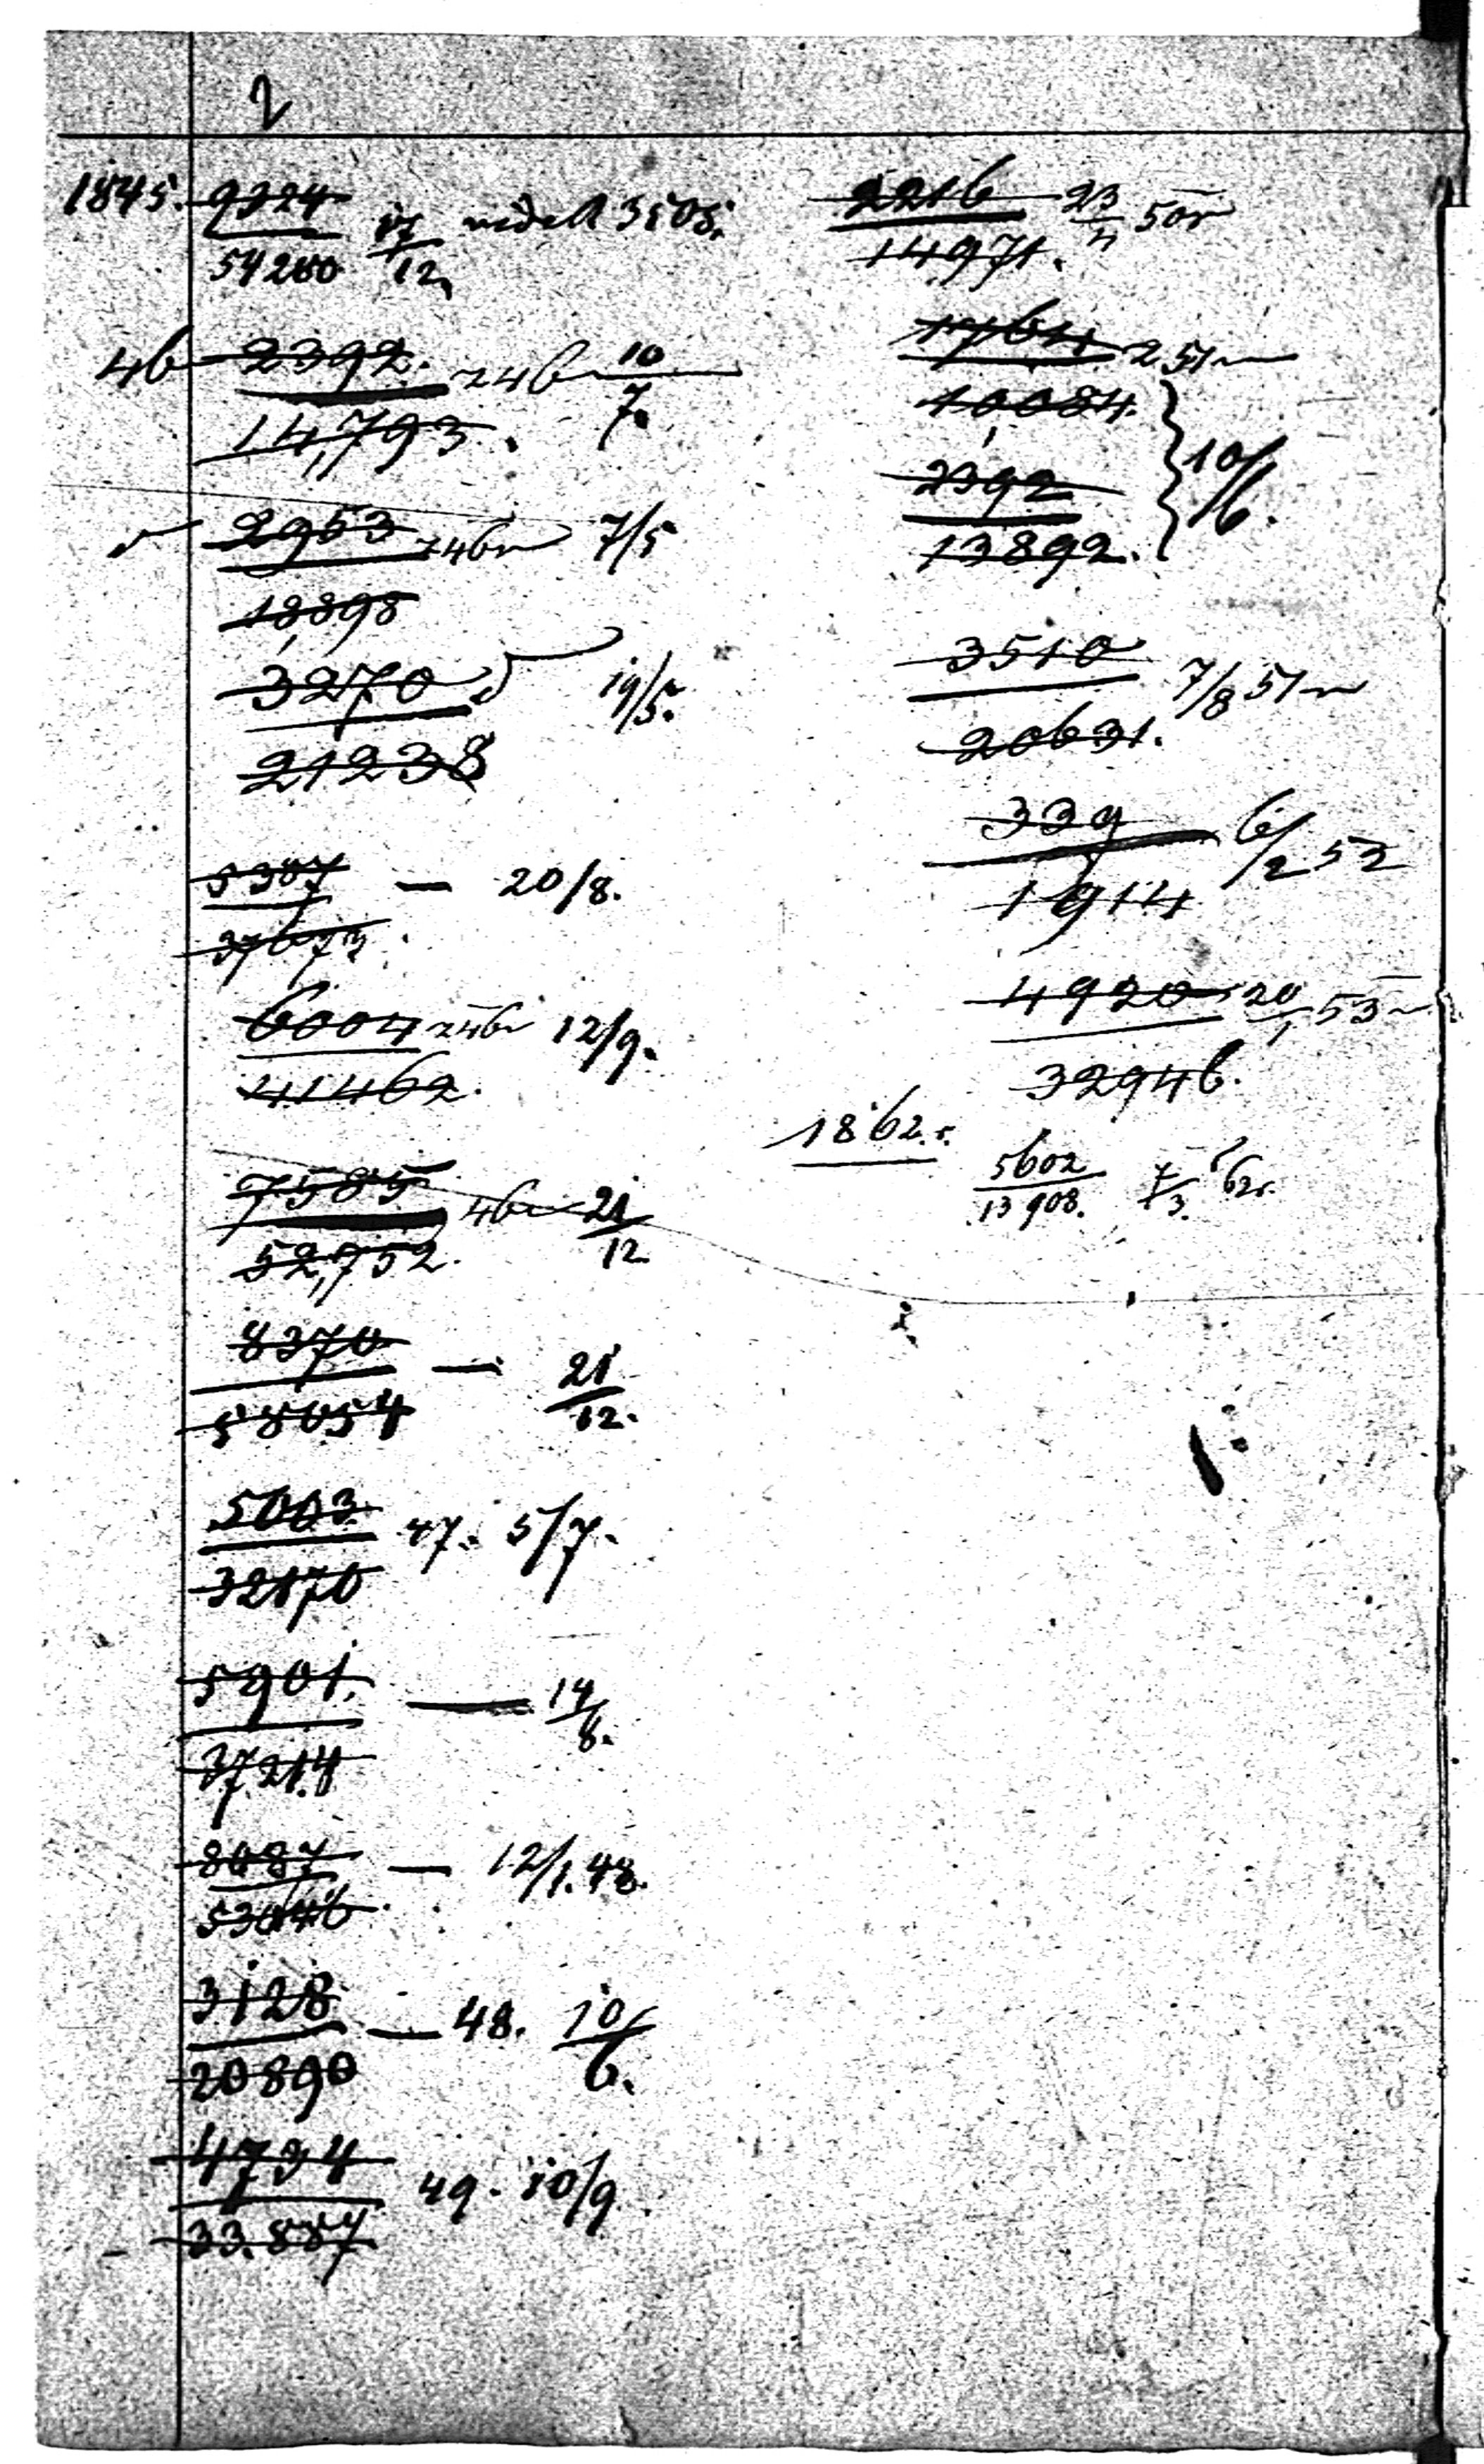 2
1845. 9324 17/12 3505.
54260
46 2392. 246 10/7.
14,793.
2953 746 7/5
18898
3270 19/5.
21238
5307 — 20/8.
37673.
6004 246 12/9.
41462.
7585 46 21/12
52,752.
8370 — 21/12.
58054
5003. 47. 5/7.
32170
5901. — 14/8.
37214
8087 — 12/1.48.
53046
3128 — 48. 10/6.
20890
4794 49. 10/9.
33.887
2216 23/4 50r
14971.
1764 251
10084.
2392 10/6.
13892.
3510 7/8 51
20631.
339 6/2 52
1914
4920 20/1 53
32946.
1862.
5602 7/3. 62.
13908.